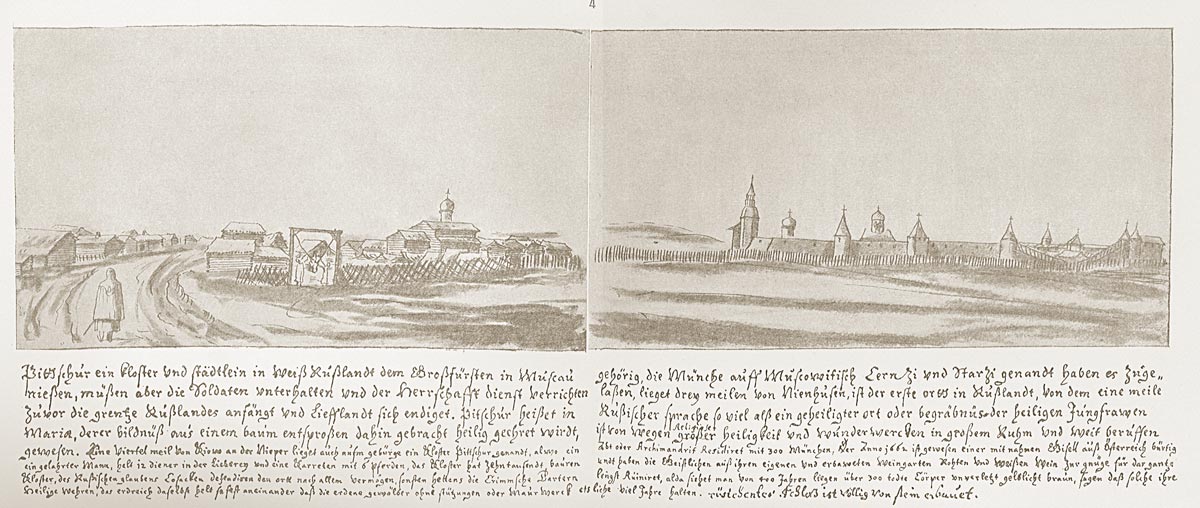 4
Pittschur ein kloster und städtlein in Weiß Rußlandt dem Großfürsten in Muscau gehörig, die Münche auff Muscowitisch Cernzi und Starzi genandt haben es Zuge=
nießen, müßen aber die Soldaten unterhalten und der Herrschafft dienst verrichten laßen, lieget drey meilen von Nienhusen, ist der erste orth in Rußlandt, von dem eine meile
Zuvor die grentze Rußlandes anfängt und Liefflandt sich endiget. Pitschur heißet in Rußischer sprache so viel alß ein geheiligter ort oder begräbnüs der heiligen Jungfrawen
Mariæ, derer bildnüß aus einem baum entsproßen dahin gebracht heilig geehret wirdt, ist von wegen großer heiligkeit und wunderwercken in großem Ruhm und weit beruffen
gewesen. Eine Viertel meil von Kiowo an der Nieper lieget auch aufm gebürge ein Kloster Pittschur genant, alwo ein Abt oder Archimandrit Residiret mit 300 München, Der Anno 1661 ist gewesen einer mit nahmen Gisell auß Österreich bürtig
ein gelahrter Mann, helt in diener in der Lieberey und eine Karreten mit 6 pferden, das Kloster hat Zehntausendt bauren undt haben die Geistlichen auß ihren eigenen und erbaweten Weingarten Rohten und Weißen Wein Zur gnüge für dar gantze
Kloster, des Rußischen glaubens Cosacken defendiren den orth nach allem vermögen, sonsten hettens die Crimmsche Tartern lengst Ruiniret, alda siehet man von 400 Jahren liegen über 300 todte Cörper unverletzt gelblicht braun, sagen daß solche ihre
Heilige wehren, das erdreich daselbst helt so fest aneinander daß die erdene gewölber ohne stützungen oder Maurwerck etsliche viel Jahre halten. Schloß ist völlig von stein erbauet.